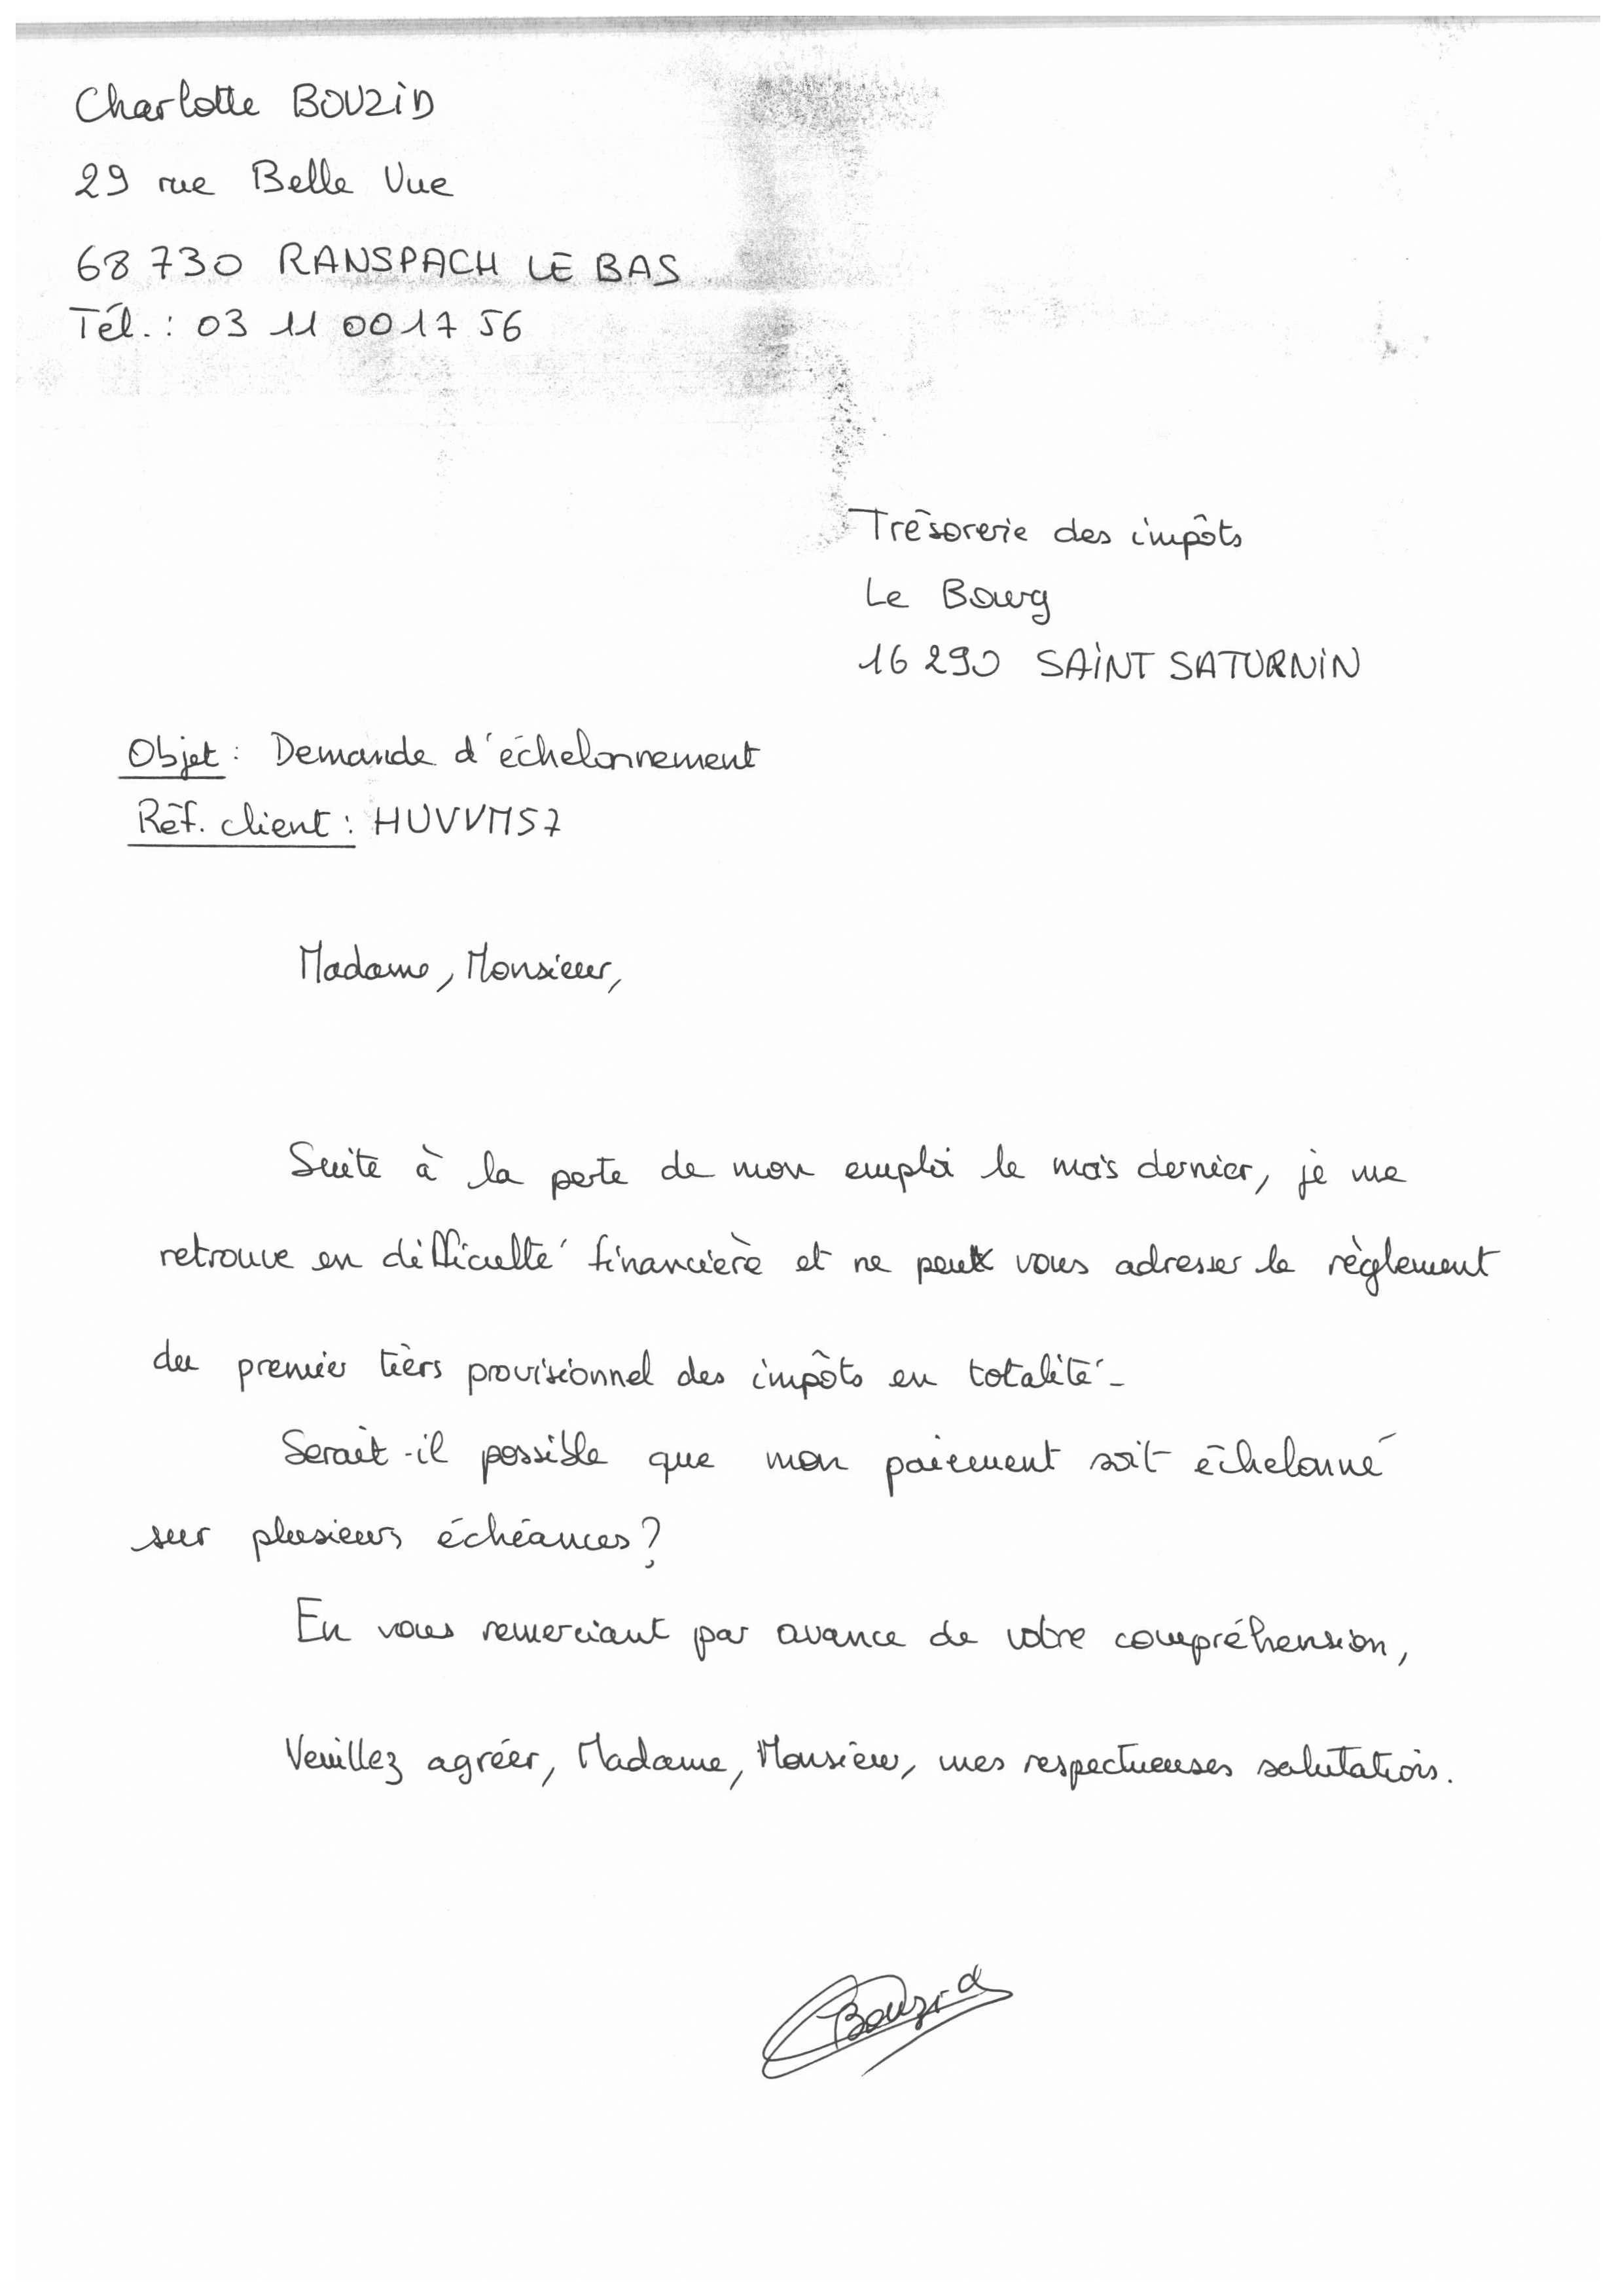 Charlotte BOUZID
29 rue Belle Vue
68 730 RANSPACH LE BAS
Tél. : 03 11 00 17 56
Trésorerie des impôts
Le Bourg
16 290 SAINT SATURNIN
Objet : Demande d'échelonnement
Réf. client : HUVVM57
Madame, Monsieur,
Suite à la perte de mon emploi le mois dernier, je me
retrouve en difficulté financière et ne peux vous adresser le règlement
du premier tiers provisionnel des impôts en totalité.
Serait-il possible que mon paiement soit échelonné
sur plusieurs échéances ?
En vous remerciant par avance de votre compréhension,
Veuillez agréer, Madame, Monsieur, mes respectueuses salutations.
Bouzid